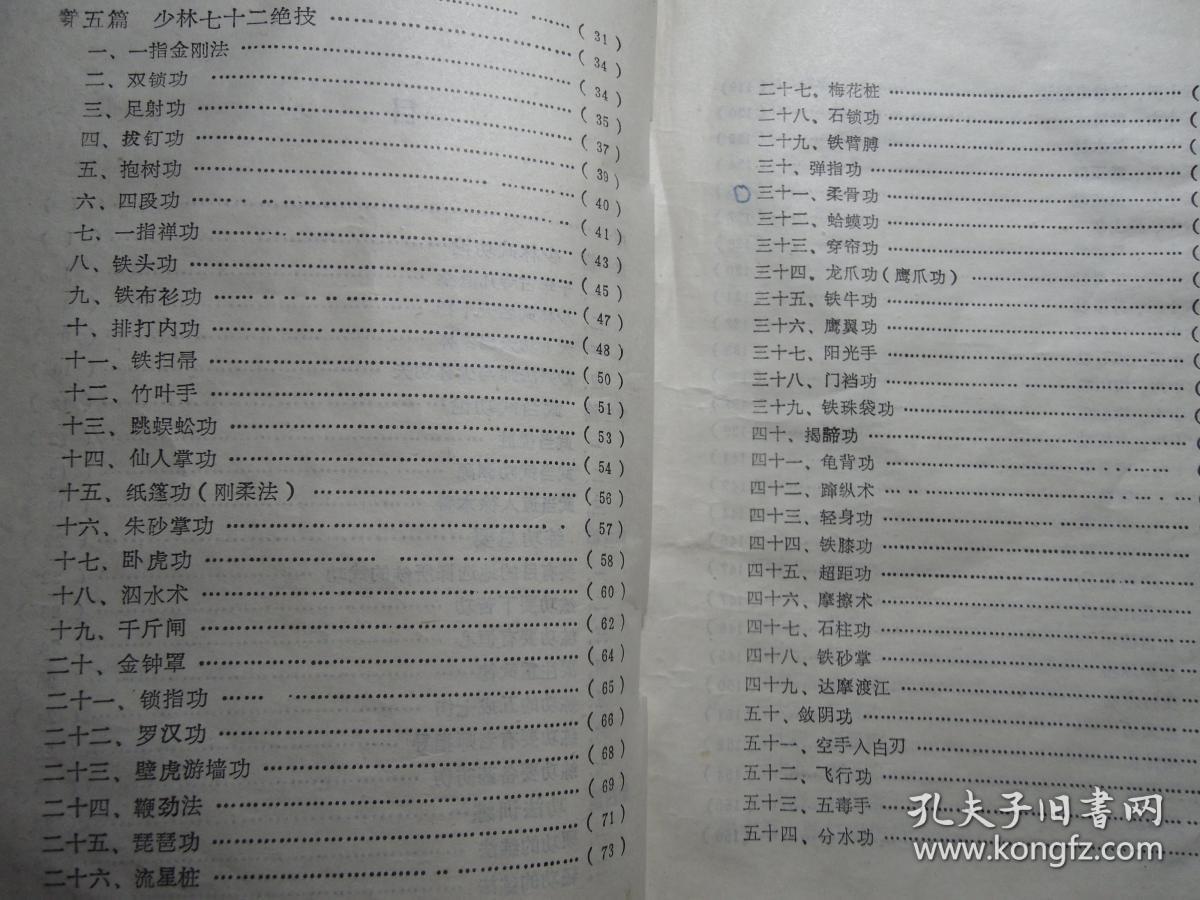 (31)
第五篇 少林七十二绝技 (34)
一、一指金刚法 (34)
二、双锁功 (35)
三、足射功 (37)
四、拔钉功 (39)
五、抱树功 (40)
六、四段功 (41)
七、一指禅功 (43)
八、铁头功 (45)
九、铁布衫功 (47)
十、排打内功 (48)
十一、铁扫帚 (50)
十二、竹叶手 (51)
十三、跳蜈蚣功 (53)
十四、仙人掌功 (54)
十五、纸篷功(刚柔法) (56)
十六、朱砂掌功 (57)
十七、卧虎功 (58)
十八、泅水术 (60)
十九、千斤闸 (62)
二十、金钟罩 (64)
二十一、锁指功 (65)
二十二、罗汉功 (66)
二十三、壁虎游墙功 (68)
二十四、鞭劲法 (69)
二十五、琵琶功 (71)
二十六、流星桩 (73)
二十七、梅花桩
二十八、石锁功
二十九、铁臂膊
三十、弹指功
三十一、柔骨功
三十二、蛤蟆功
三十三、穿帘功
三十四、龙爪功(鹰爪功)
三十五、铁牛功
三十六、鹰翼功
三十七、阳光手
三十八、门裆功
三十九、铁珠袋功
四十、揭谛功
四十一、龟背功
四十二、蹿纵术
四十三、轻身功
四十四、铁膝功
四十五、超距功
四十六、摩擦术
四十七、石柱功
四十八、铁砂掌
四十九、达摩渡江
五十、敛阴功
五十一、空手入白刃
五十二、飞行功
五十三、五毒手
五十四、分水功
孔夫子旧书网
www.kongfz.com